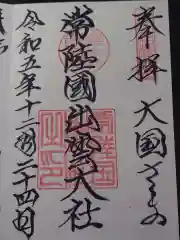 奉拝
大国さまの
常陸國出雲大社
令和五年十二月二十四日